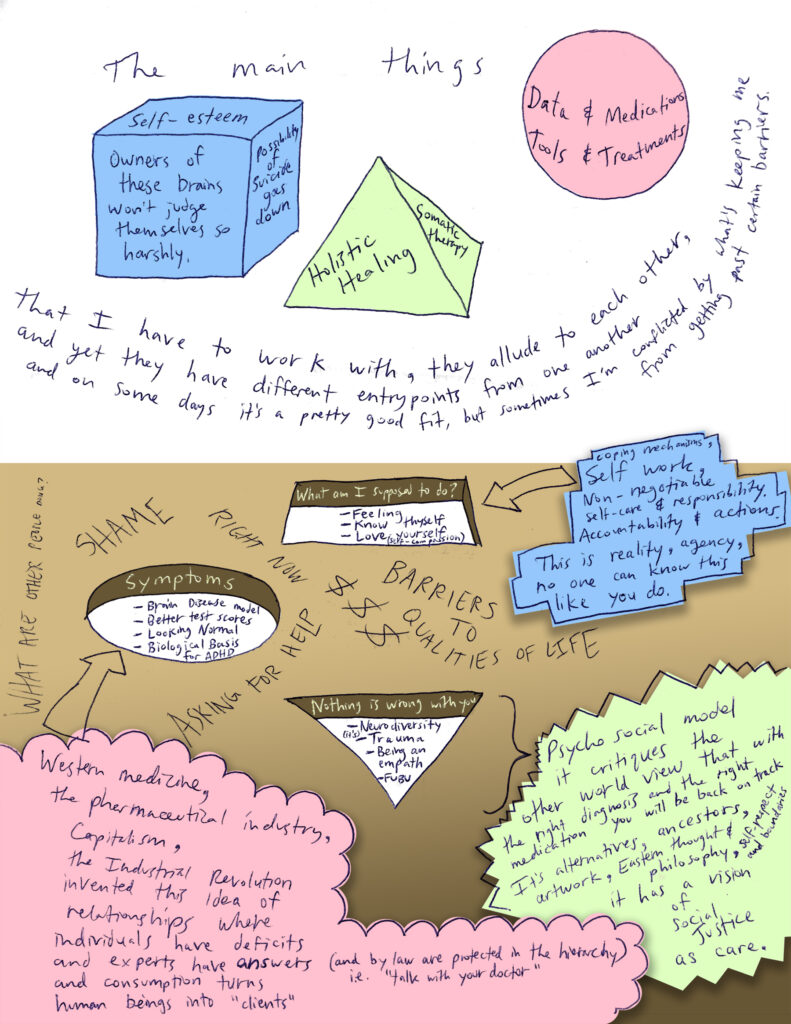 The main things
Self-esteem
Owners of
these brains
won't judge
themselves so
harshly.
Possibility
of
suicide
goes
down
Holistic
Healing
Somatic
therapy
Data & Medications
Tools & Treatments
that I have to work with, they allude to each other,
and yet they have different entrypoints from one another
and on some days it's a pretty good fit, but sometimes I'm conflicted by what's keeping me
from getting past certain barriers.
WHAT ARE OTHER PEOPLE DOING?
SHAME
RIGHT NOW
ASKING FOR HELP
$ $ $
BARRIERS
TO
QUALITIES OF LIFE
What am I supposed to do?
- Feeling
- Know thyself
- Love yourself
(self-compassion)
coping mechanisms,
Self work,
Non-negotiable
self-care & responsibility.
Accountability & actions.
This is reality, agency,
no one can know this
like you do.
Symptoms
- Brain Disease model
- Better test scores
- Looking Normal
- Biological Basis
for ADHD
Nothing is wrong with you
(it's) - Neurodiversity
- Trauma
- Being an
empath
- FUBU
Western medicine,
the pharmaceutical industry,
Capitalism,
the Industrial Revolution
invented this idea of
relationships where
individuals have deficits
and experts have answers
(and by law are protected in the hierarchy)
i.e. "talk with your doctor"
and consumption turns
human beings into "clients"
Psycho social model
it critiques the
other world view that with
the right diagnosis and the right
medication you will be back on track
It's alternatives, ancestors,
artwork, Eastern thought &
philosophy, self-respect
and boundaries
it has a vision
of
Social
Justice
as care.